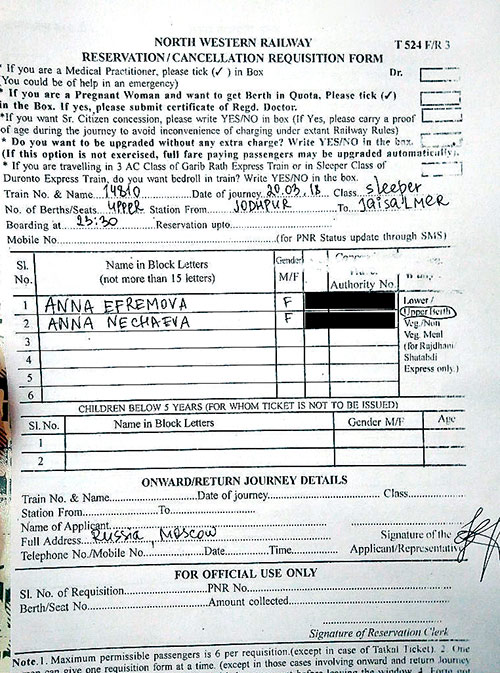 NORTH WESTERN RAILWAY T 524 F/R 3
RESERVATION/CANCELLATION REQUISITION FORM
* If you are a Medical Practitioner, please tick (✓) in Box Dr.
(You could be of help in an emergency)
* If you are a Pregnant Woman and want to get Berth in Quota, Please tick (✓)
in the Box. If yes, please submit certificate of Regd. Doctor.
*If you want Sr. Citizen concession, please write YES/NO in box (If Yes, please carry a proof
of age during the journey to avoid inconvenience of charging under extant Railway Rules)
* Do you want to be upgraded without any extra charge? Write YES/NO in the box.
(If this option is not exercised, full fare paying passengers may be upgraded automatically).
* If you are travelling in 3 AC Class of Garib Rath Express Train or in Sleeper Class of
Duronto Express Train, do you want bedroll in train? Write YES/NO in the box.
Train No. & Name 14810 Date of journey 20.03.18 Class sleeper
No. of Berths/Seats UPPER Station From JODHPUR To JAISALMER
Boarding at 23:30 Reservation upto
Mobile No. (for PNR Status update through SMS)
Sl. No. Name in Block Letters (not more than 15 letters) Gender M/F Authority No.
1 ANNA EFREMOVA F Lower /
2 ANNA NECHAEVA F Upper Berth
3 Veg./Non
4 Veg. Meal
5 (for Rajdhani Shatabdi
6 Express only)
CHILDREN BELOW 5 YEARS (FOR WHOM TICKET IS NOT TO BE ISSUED)
Sl. No. Name in Block Letters Gender M/F Age
1
2
ONWARD/RETURN JOURNEY DETAILS
Train No. & Name Date of journey Class
Station From To
Name of Applicant
Full Address Russia, Moscow Signature of the
Telephone No./Mobile No. Date Time Applicant/Representative
FOR OFFICIAL USE ONLY
Sl. No. of Requisition PNR No.
Berth/Seat No. Amount collected
Signature of Reservation Clerk
Note. 1. Maximum permissible passengers is 6 per requisition.(except in case of Tatkal Ticket). 2. One
can give one requisition form at a time. (except in those cases involving onward and return Journey